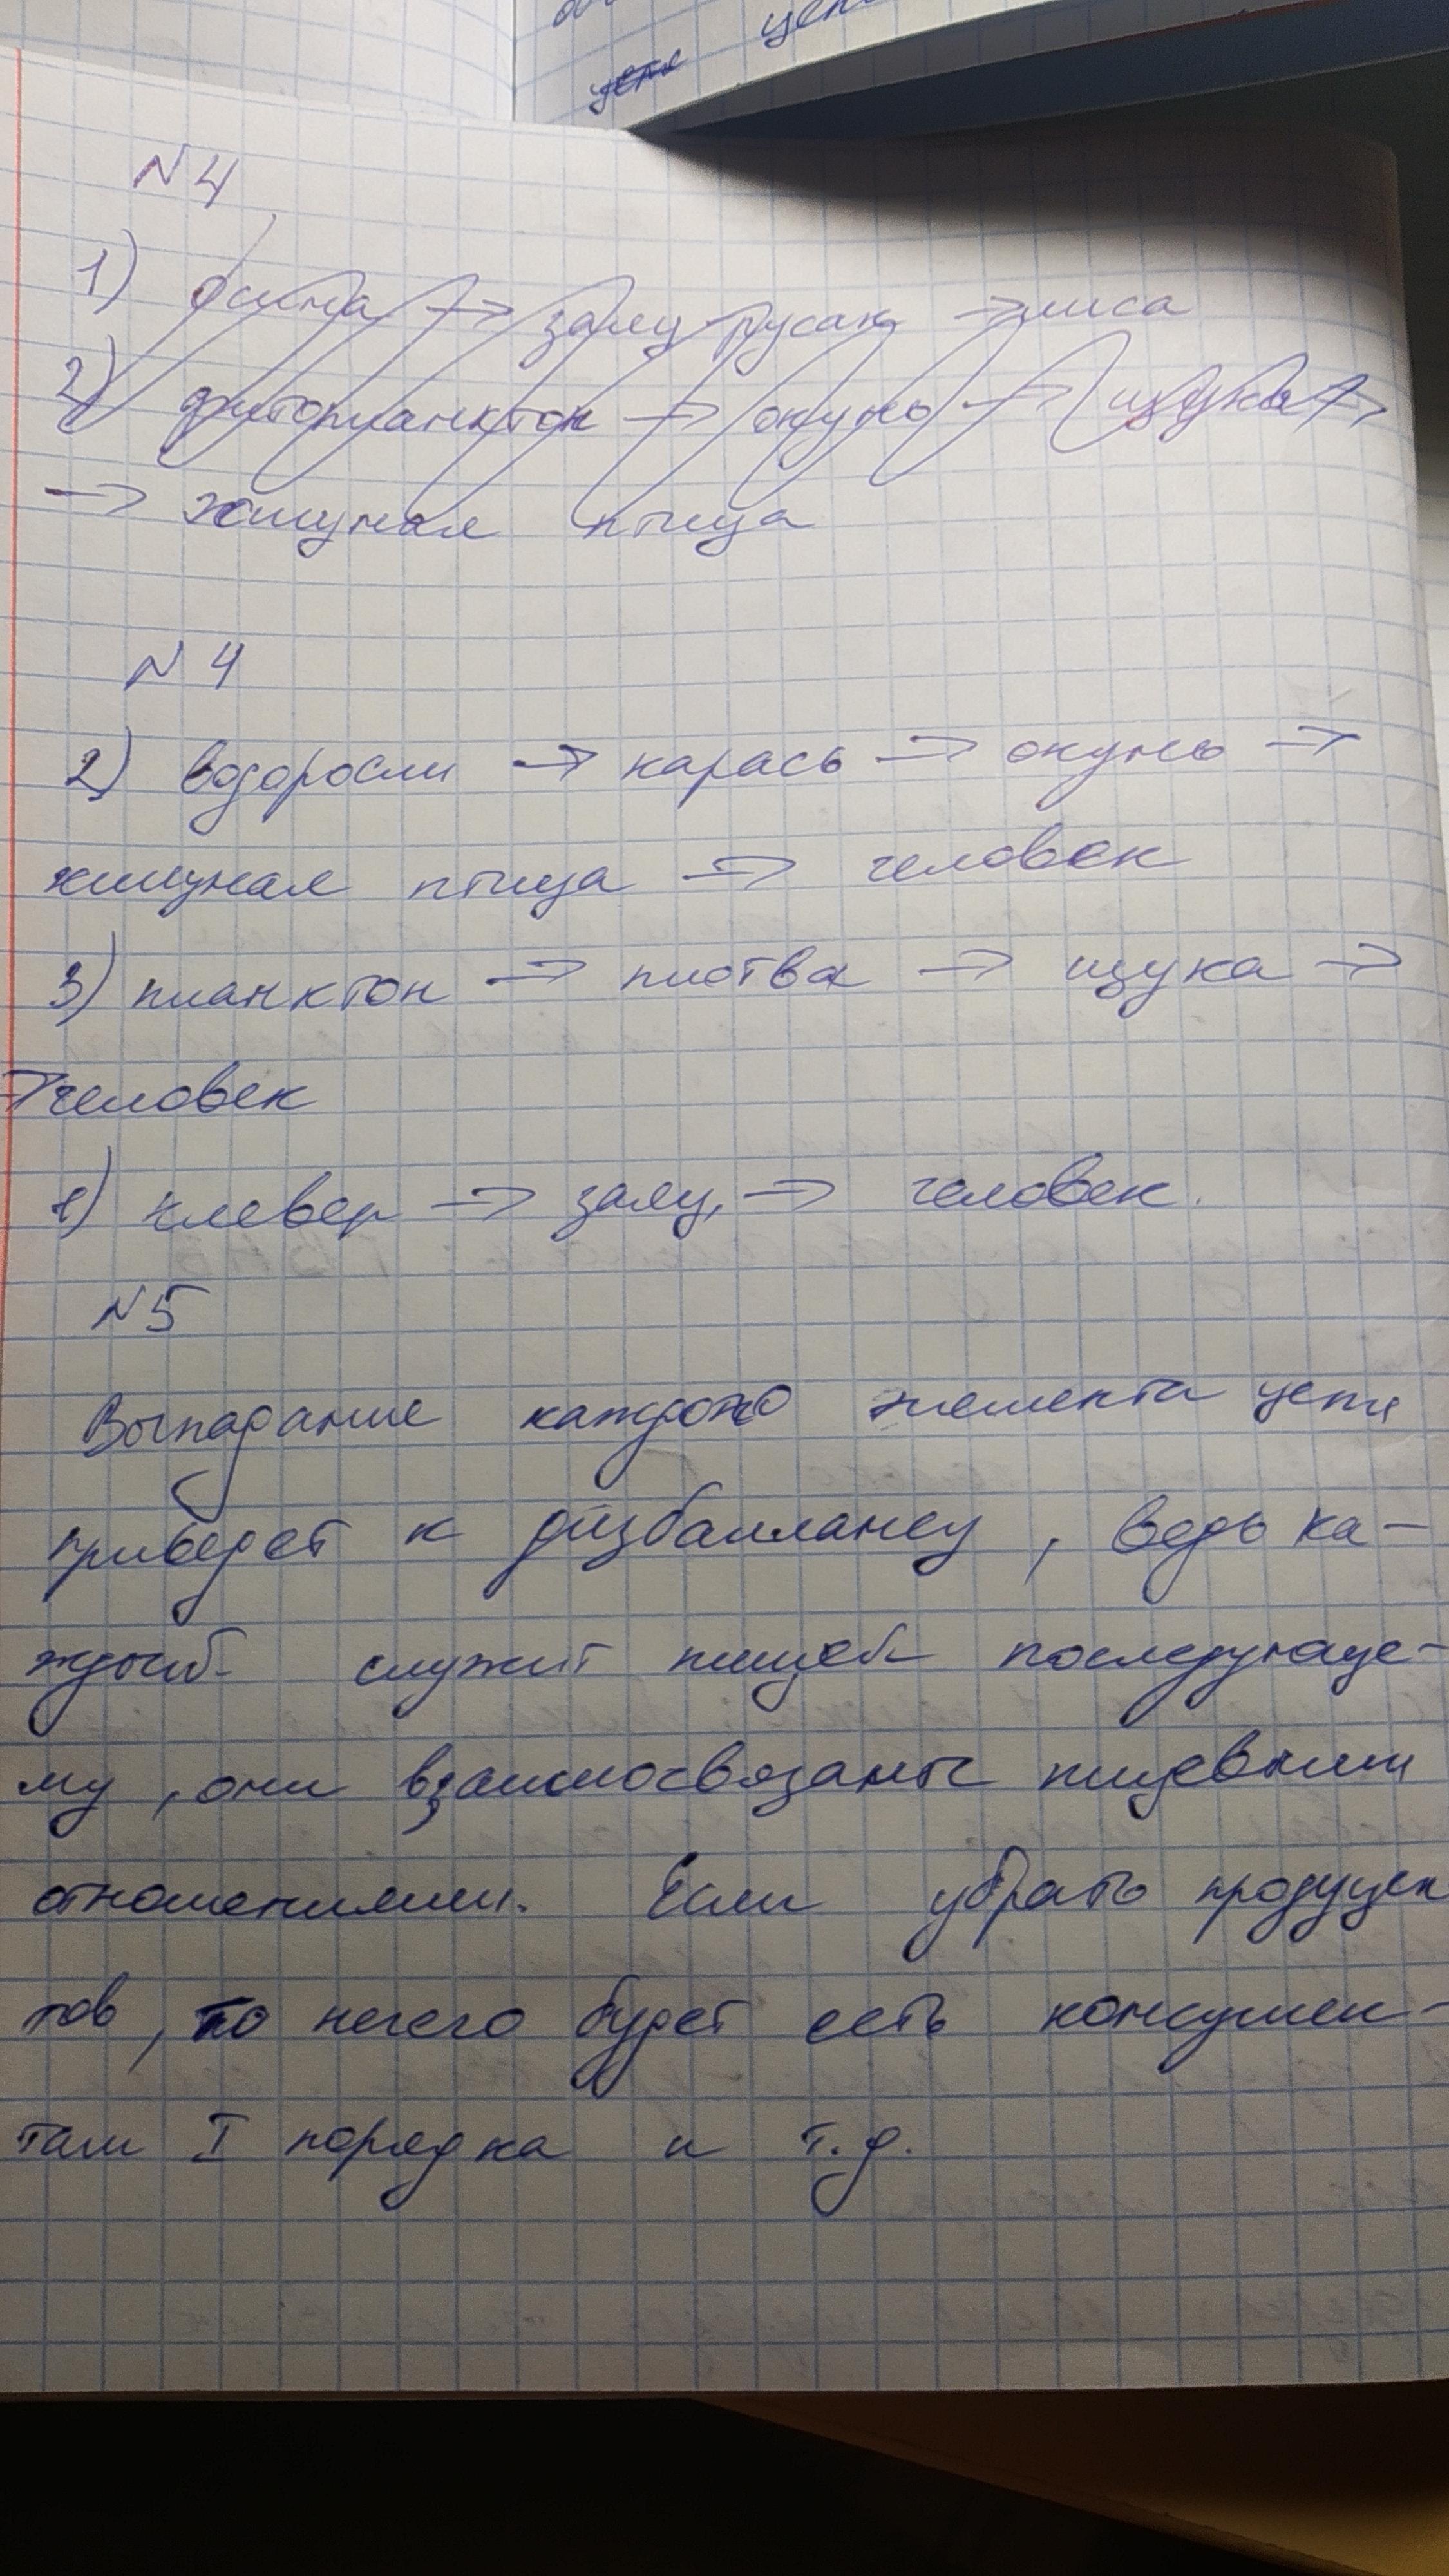 цепи
№4
1) осина → заяц-русак → лиса
2) фитопланктон → окунь → щука →
→ хищная птица
№4
2) водоросли → карась → окунь →
хищная птица → человек
3) планктон → плотва → щука →
→ человек
1) клевер → заяц → человек.
№5
Выпадание каждого элемента цепи
приведет к дизбаллансу, ведь ка-
ждый служит пищей последующе-
му, они взаимосвязаны пищевыми
отношениями. Если убрать продуцен
тов, то нечего будет есть консумен-
там I порядка и т.д.